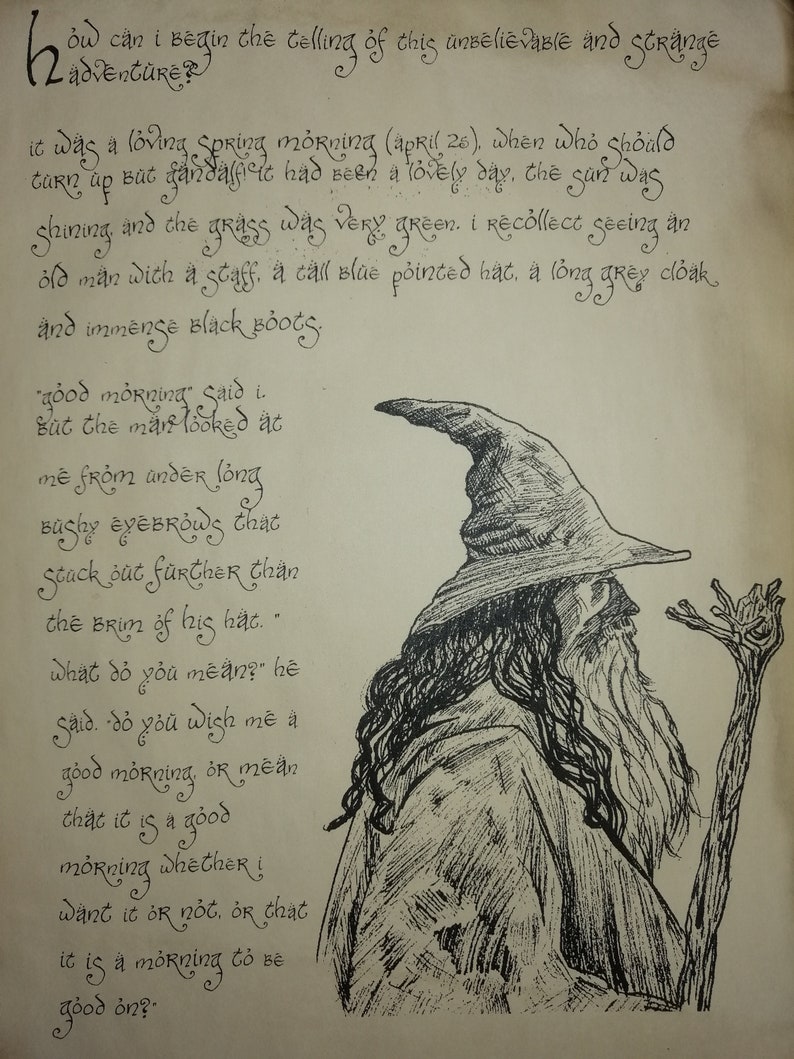 how can i begin the telling of this unbelievable and strange
adventure?
it was a loving spring morning (april 26), when who should
turn up but gandalf! it had been a lovely day, the sun was
shining, and the grass was very green. i recollect seeing an
old man with a staff, a tall blue pointed hat, a long grey cloak,
and immense black boots.
"good morning" said i.
but the man looked at
me from under long
bushy eyebrows that
stuck out further than
the brim of his hat. "
what do you mean?" he
said. "do you wish me a
good morning, or mean
that it is a good
morning whether i
want it or not, or that
it is a morning to be
good on?"